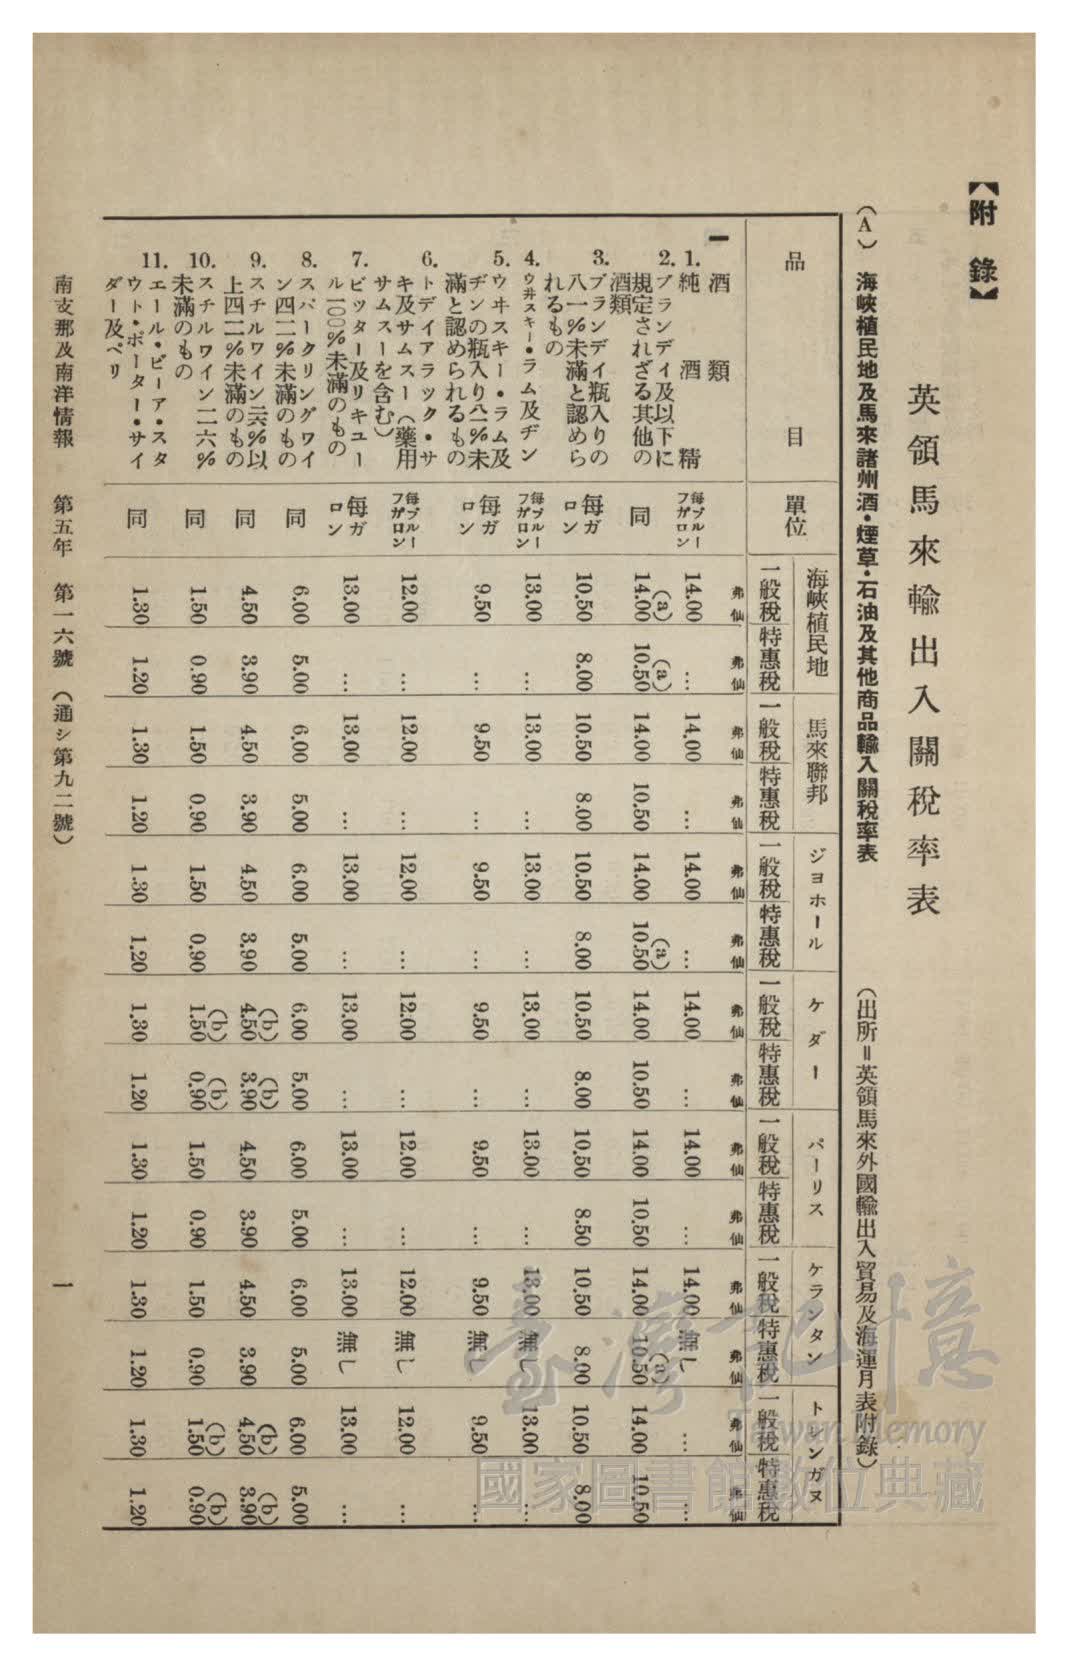 【附錄】
英領馬來輸出入關稅率表
(A) 海峽植民地及馬來諸州酒・煙草・石油及其他商品輸入關稅率表 (出所=英領馬來外國輸出入貿易及海運月表附錄)
品目 單位 海峽植民地 馬來聯邦 ジョホール ケダー パーリス ケランタン トレンガヌ
一般稅 特惠稅 一般稅 特惠稅 一般稅 特惠稅 一般稅 特惠稅 一般稅 特惠稅 一般稅 特惠稅 一般稅 特惠稅
一 酒類 弗仙 弗仙 弗仙 弗仙 弗仙 弗仙 弗仙 弗仙 弗仙 弗仙 弗仙 弗仙 弗仙 弗仙
1. 純酒精 每プルーフガロン 14.00 … 14.00 … 14.00 … 14.00 … 14.00 … 14.00 無し … …
2. ブランデイ及以下に規定されざる其他の酒類 同 (a)14.00 (a)10.50 14.00 10.50 14.00 (a)10.50 14.00 10.50 14.00 10.50 14.00 (a)10.50 14.00 10.50
3. ブランデイ瓶入りの八一%未滿と認められるもの 每ガロン 10.50 8.00 10.50 8.00 10.50 8.00 10.50 8.00 10.50 8.50 10.50 8.00 10.50 8.00
4. ウ井スキー・ラム及ヂン 每プルーフガロン 13.00 … 13.00 … 13.00 … 13.00 … 13.00 … 13.00 無し 13.00 …
5. ウヰスキー・ラム及ヂンの瓶入り八一%未滿と認められるもの 每ガロン 9.50 … 9.50 … 9.50 … 9.50 … 9.50 … 9.50 無し 9.50 …
6. トデイアラック・サキ及サムスー(藥用サムスーを含む) 每プルーフガロン 12.00 … 12.00 … 12.00 … 12.00 … 12.00 … 12.00 無し 12.00 …
7. ビッター及リキュール一〇〇%未滿のもの 每ガロン 13.00 … 13.00 … 13.00 … 13.00 … 13.00 … 13.00 無し 13.00 …
8. スパークリングワイン四二%未滿のもの 同 6.00 5.00 6.00 5.00 6.00 5.00 6.00 5.00 6.00 5.00 6.00 5.00 6.00 5.00
9. スチルワイン二六%以上四二%未滿のもの 同 4.50 3.90 4.50 3.90 4.50 3.90 (b)4.50 (b)3.90 4.50 3.90 4.50 3.90 (b)4.50 (b)3.90
10. スチルワイン二六%未滿のもの 同 1.50 0.90 1.50 0.90 1.50 0.90 (b)1.50 (b)0.90 1.50 0.90 1.50 0.90 (b)1.50 (b)0.90
11. エール・ビーア・スタウト・ポーター・サイダー及ペリ 同 1.30 1.20 1.30 1.20 1.30 1.20 1.30 1.20 1.30 1.20 1.30 1.20 1.30 1.20
南支那及南洋情報 第五年 第一六號 (通シ第九二號) 一
臺灣記憶
Taiwan Memory
國家圖書館數位典藏